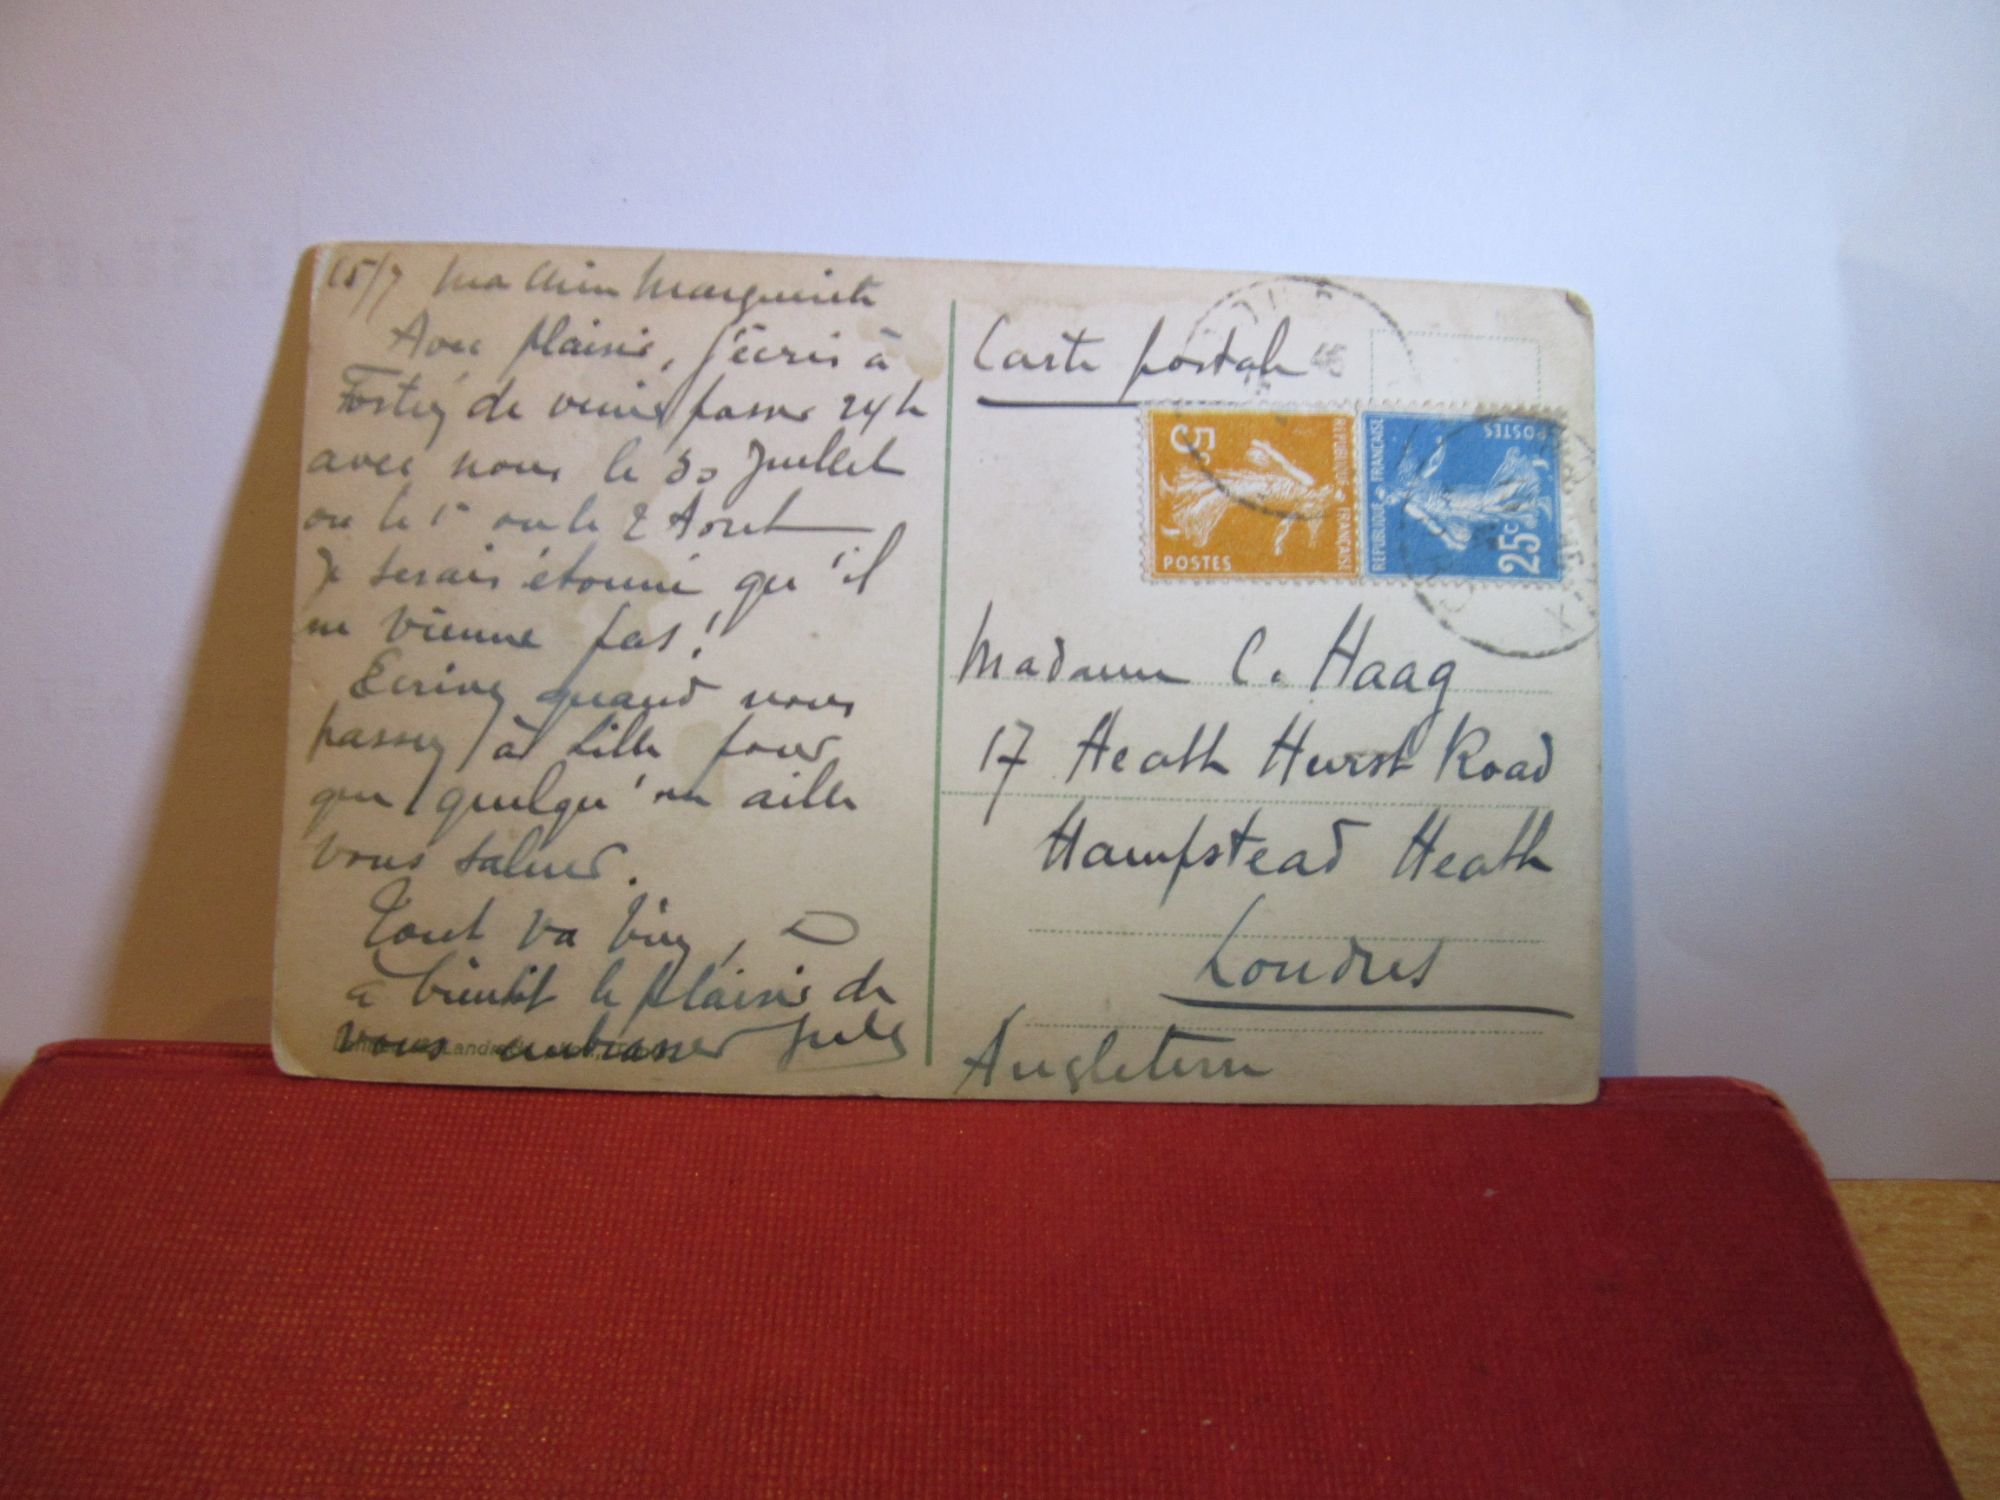 15/7 Ma chère Marguerite
Avec plaisir, j'écris à
de venir passer 24 h
avec nous le 30 Juillet
ou le 1er ou le 2 Aout
Je serais étonné qu'il
ne vienne pas !
Ecrivez quand vous
passez à Lille pour
que quelqu'un aille
vous saluer.
Tout va bien,
à bientôt le plaisir de
vous embrasser Jules
Carte postale
5c
REPUBLIQUE FRANÇAISE
POSTES
25c
REPUBLIQUE FRANÇAISE
POSTES
Madame C. Haag
17 Heath Hurst Road
Hampstead Heath
Londres
Angleterre